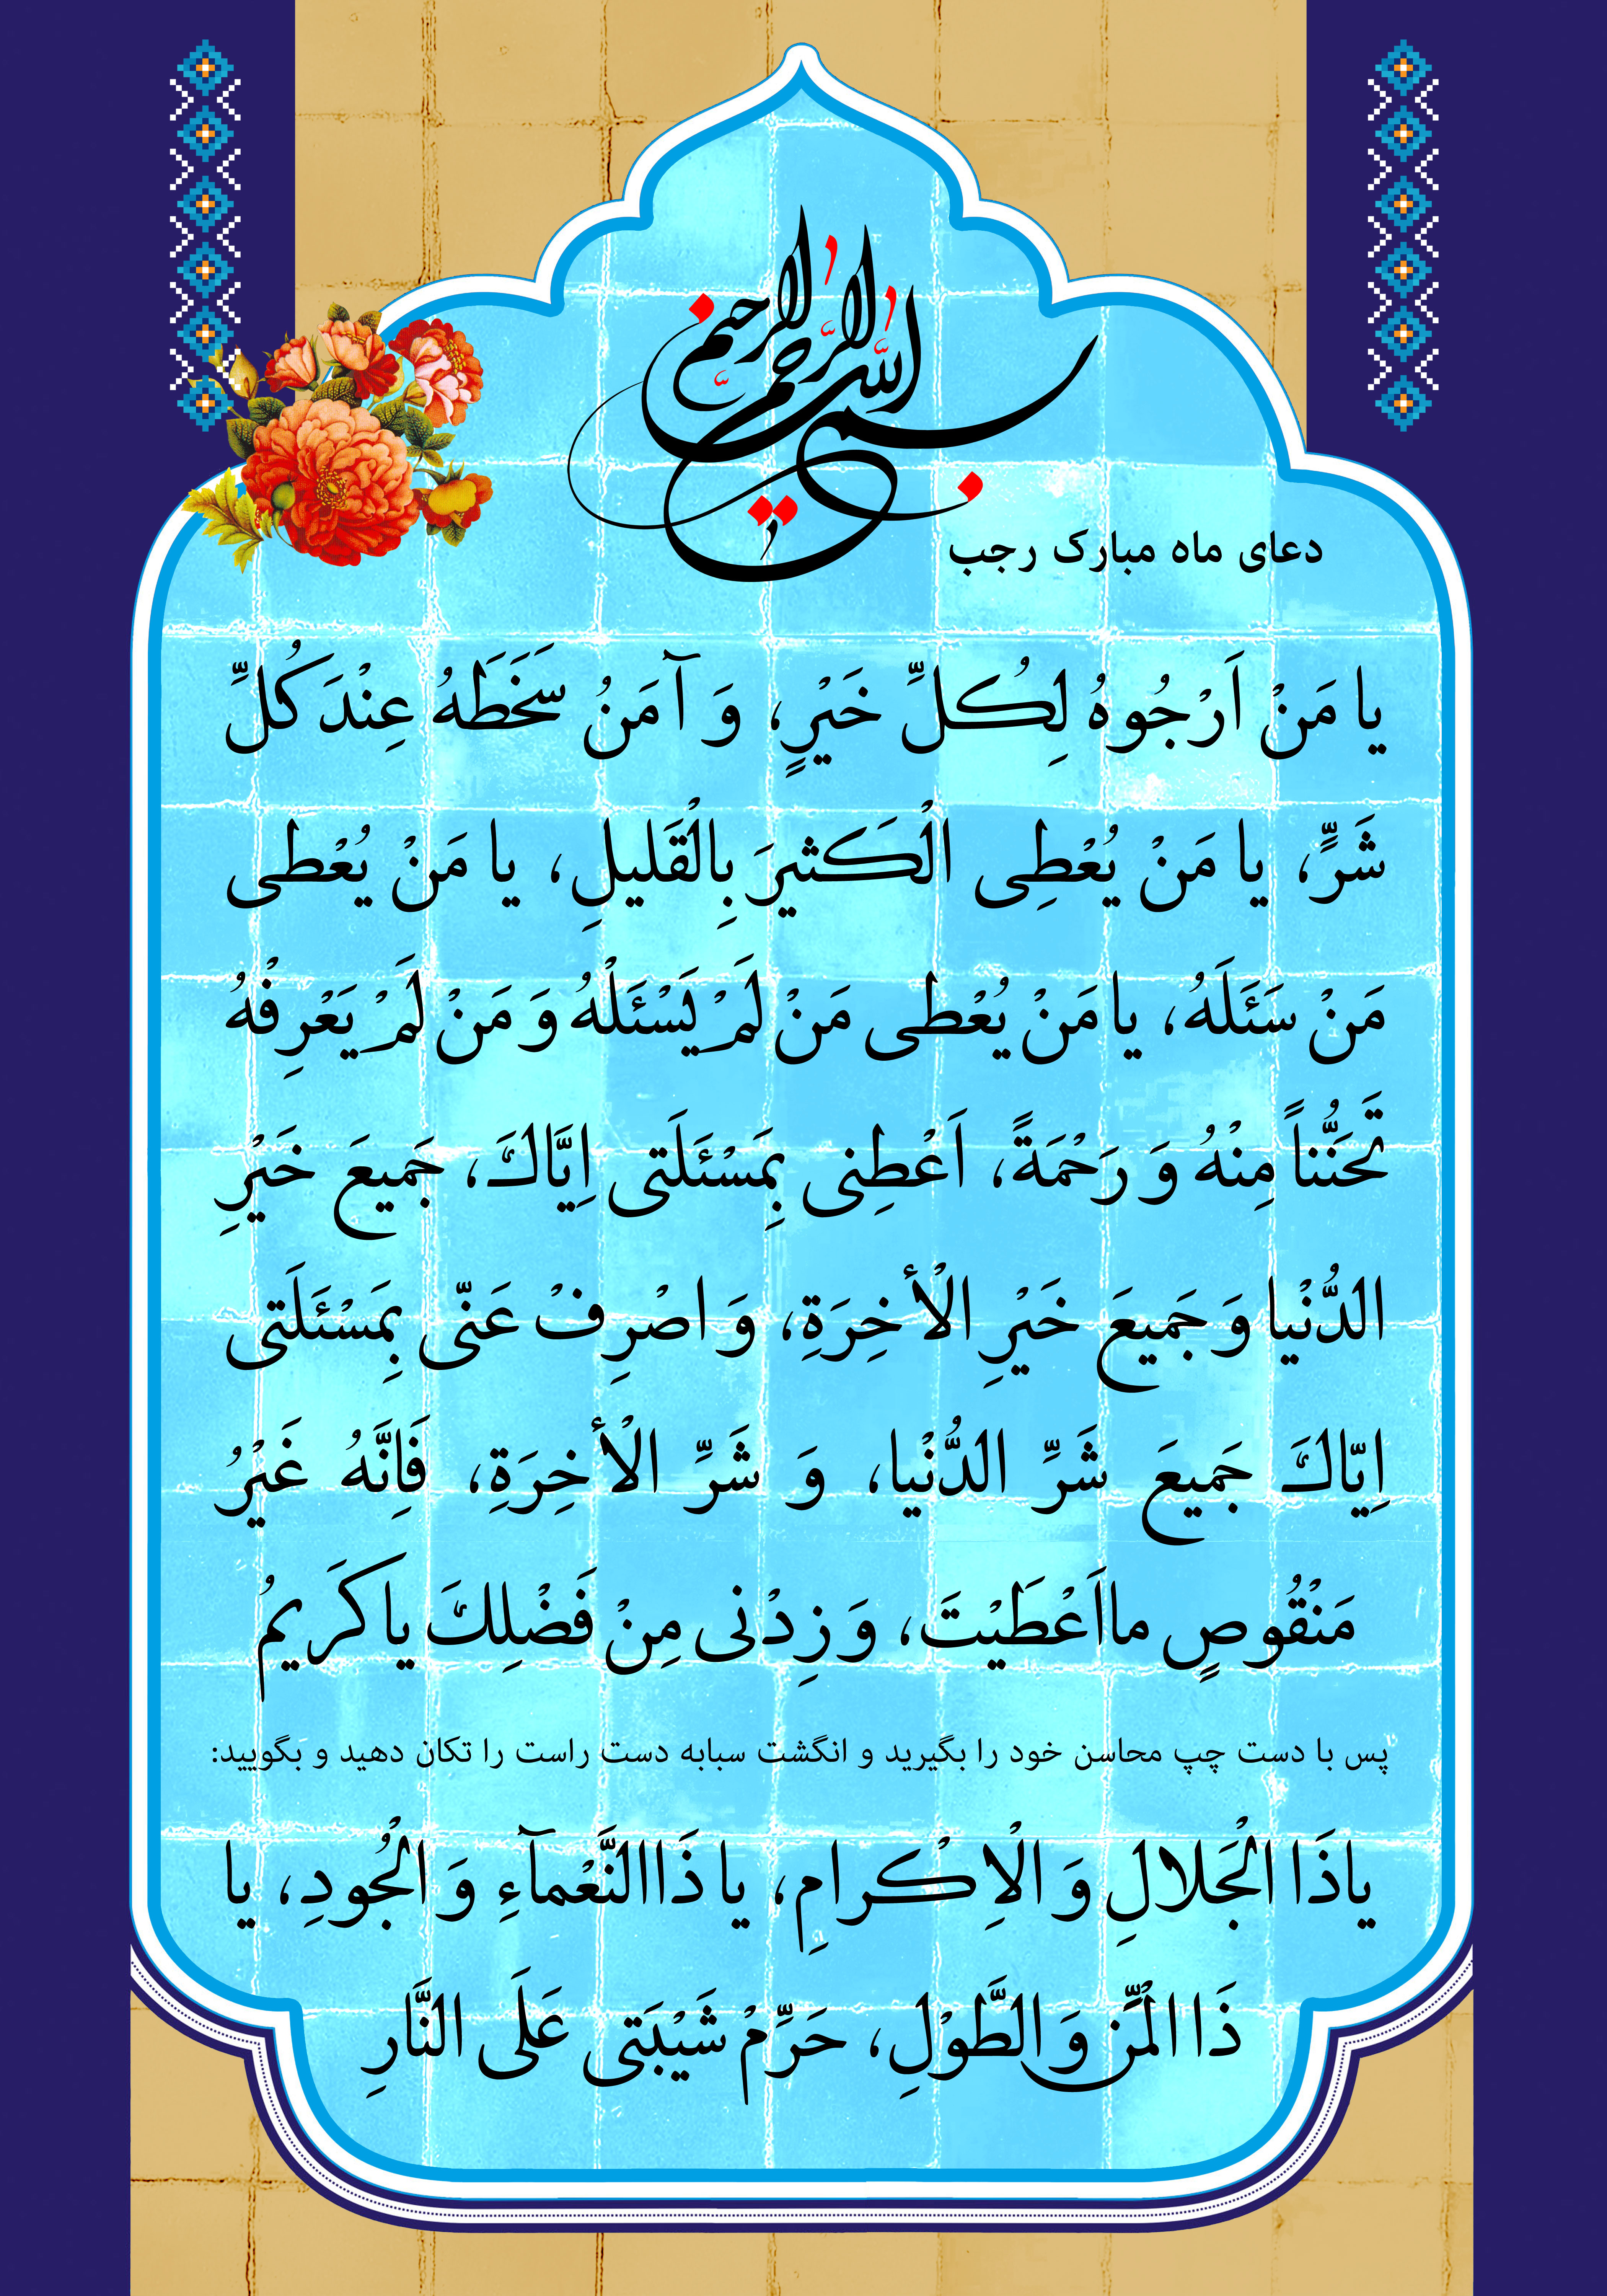 بسم الله الرحمن الرحیم
دعای ماه مبارک رجب
یا مَنْ اَرْجُوهُ لِکُلِّ خَیْرٍ، وَ آمَنُ سَخَطَهُ عِنْدَ کُلِّ
شَرٍّ، یا مَنْ یُعْطِی الْکَثیرَ بِالْقَلیلِ، یا مَنْ یُعْطی
مَنْ سَئَلَهُ، یا مَنْ یُعْطی مَنْ لَمْ یَسْئَلْهُ وَ مَنْ لَمْ یَعْرِفْهُ
تَحَنُّناً مِنْهُ وَ رَحْمَةً، اَعْطِنی بِمَسْئَلَتی اِیَّاكَ، جَمیعَ خَیْرِ
الدُّنْیا وَ جَمیعَ خَیْرِ الْأخِرَةِ، وَ اصْرِفْ عَنّی بِمَسْئَلَتی
اِیّاكَ جَمیعَ شَرِّ الدُّنْیا، وَ شَرِّ الْأخِرَةِ، فَاِنَّهُ غَیْرُ
مَنْقُوصٍ ما اَعْطَیْتَ، وَ زِدْنی مِنْ فَضْلِكَ یا کَریمُ
پس با دست چپ محاسن خود را بگیرید و انگشت سبابه دست راست را تکان دهید و بگویید:
یا ذَا الْجَلالِ وَ الْاِکْرامِ، یا ذَا النَّعْمآءِ وَ الْجُودِ، یا
ذَا الْمَنِّ وَ الطَّوْلِ، حَرِّمْ شَیْبَتی عَلَی النَّارِ